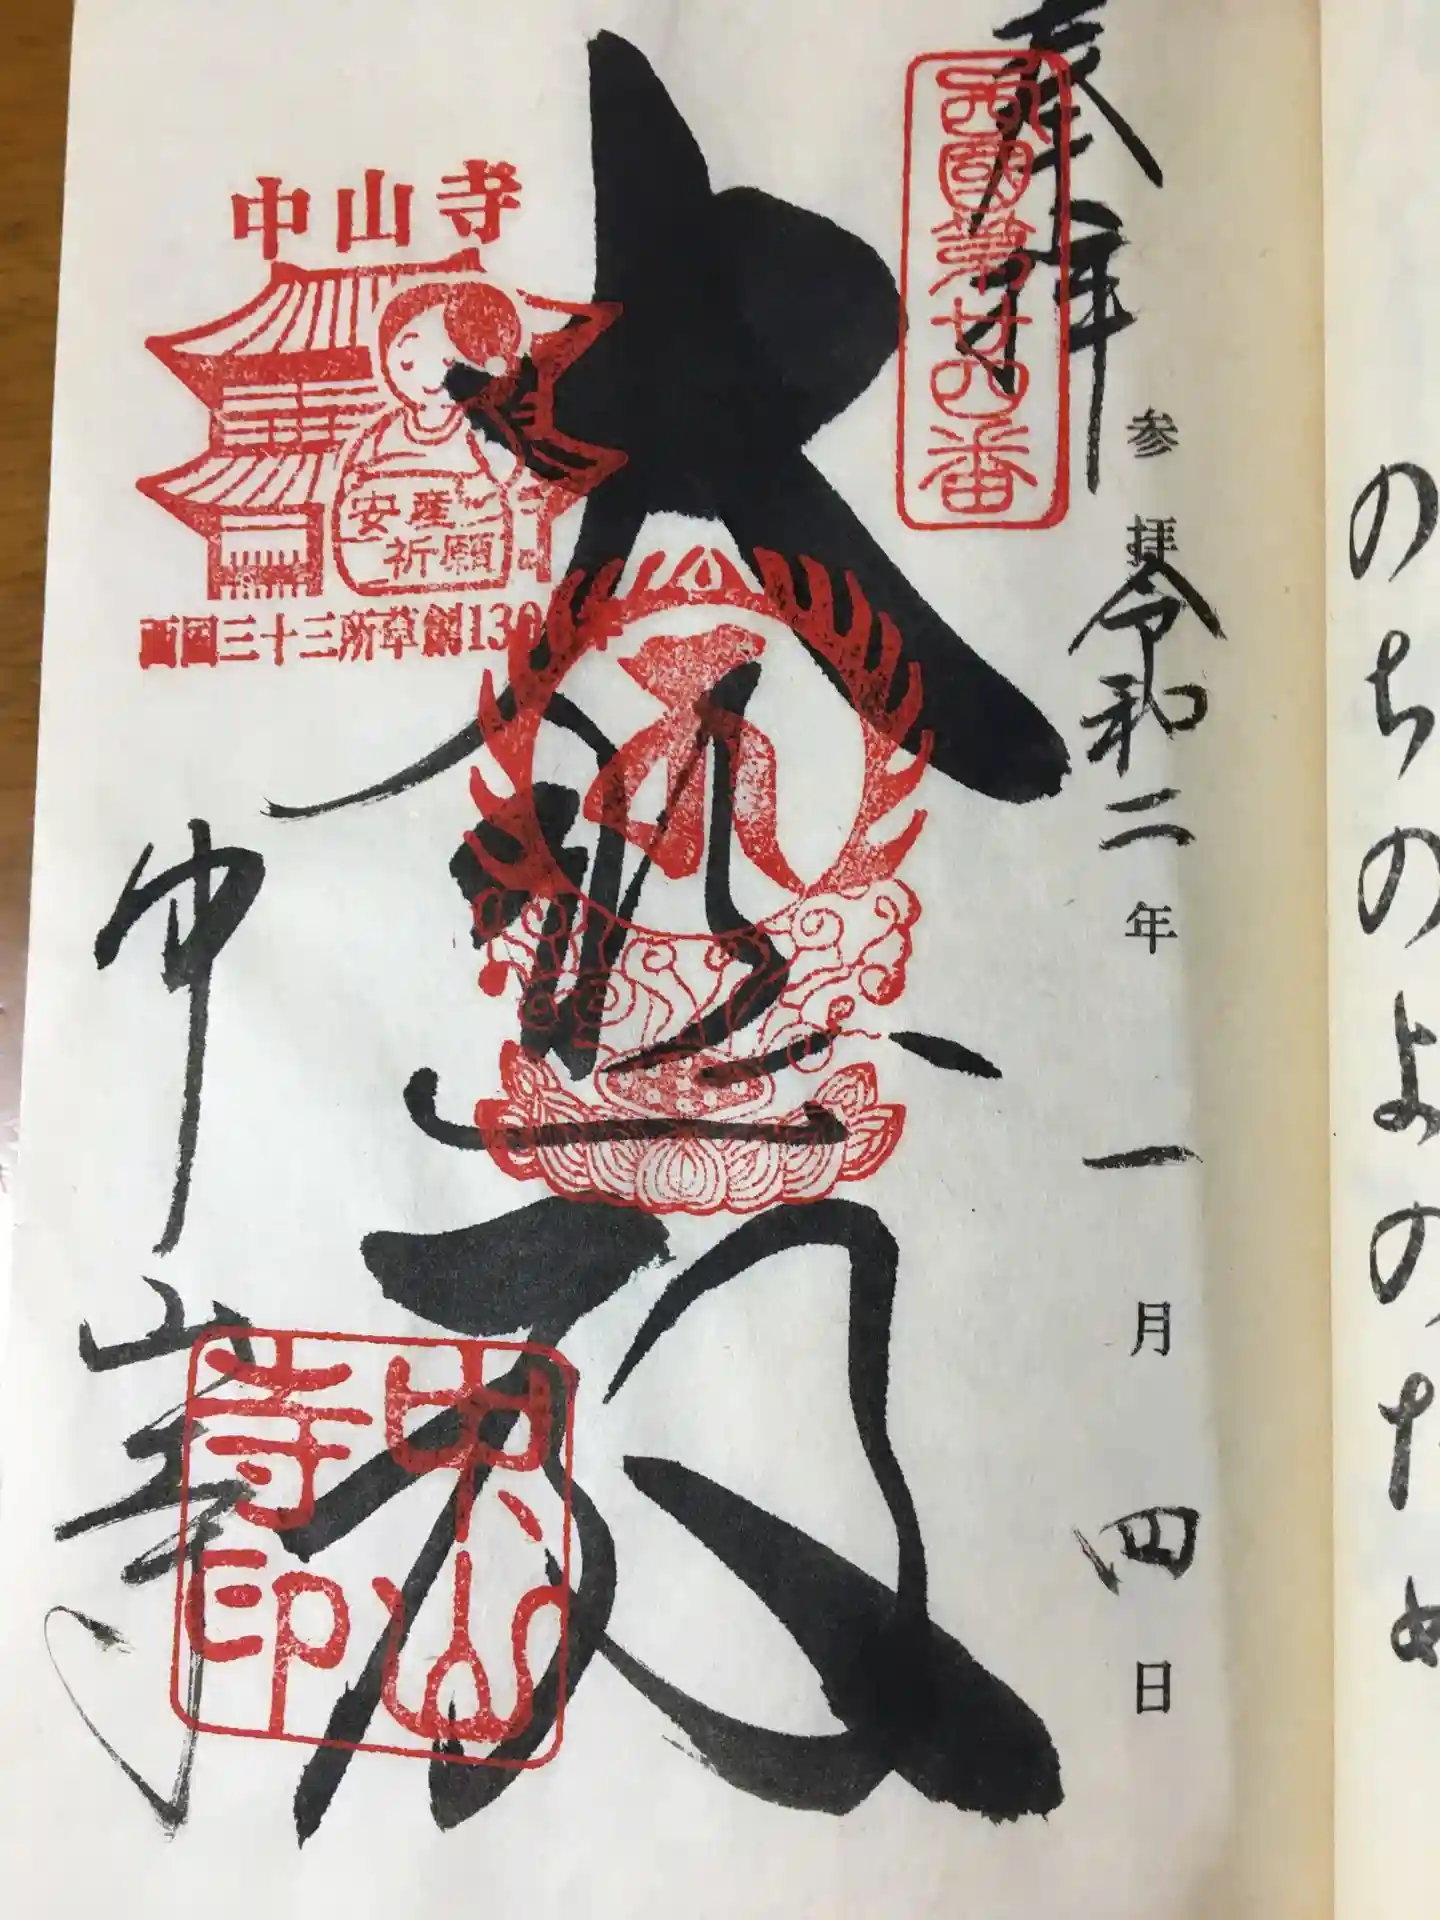 奉拝
西國第廿四番
参拝
令和二年一月四日
大悲殿
中山寺
安産
祈願
西国三十三所草創130年
中山寺
中山寺印
のちのよのため